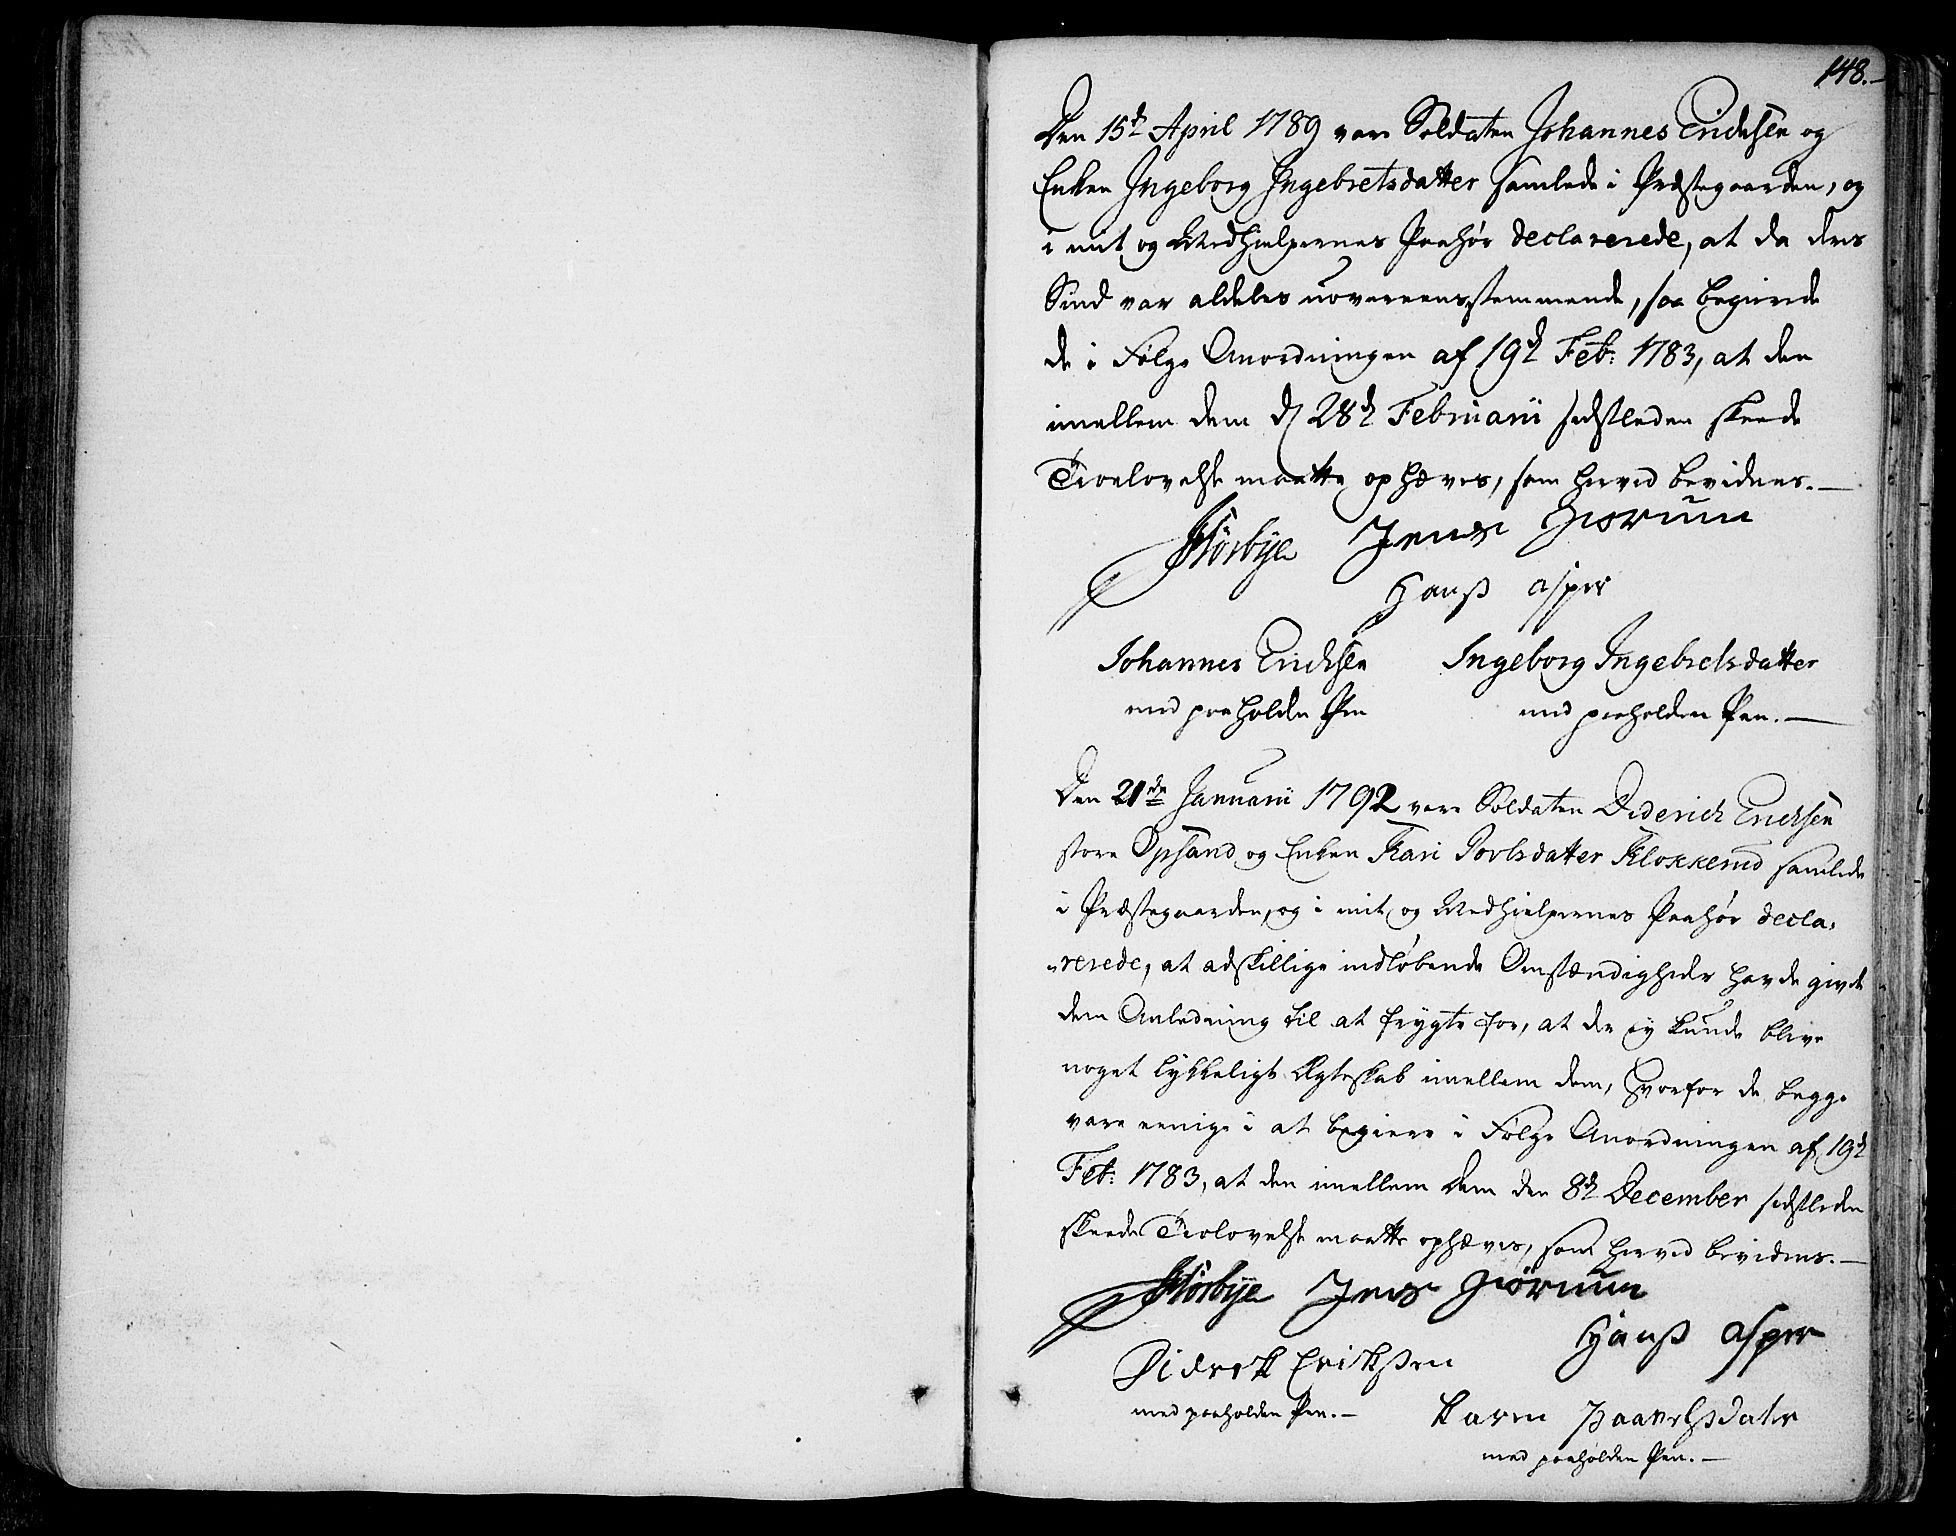 148.
Den 15d April 1789 vare Soldaten Johannes Erichsen og
Enken Ingeborg Ingebretsdatter samlede i Præstegaarden, og
i mit og Medhielpernes Paahør declarerede, at da deres
Sind var aldeles uoverensstemmende, saa begierede
de i Følge Anordningen af 19d Feb: 1783, at den
imellem dem d 28d Februarii sidstleden skeede
Troelovelse maatte ophæves, som herved bevidnes.
Jens Giørum
Hanß asper
Johannes Erichsen Ingeborg Ingebretsdatter
med paaholden Pen med paaholden Pen.
Den 21de Januarii 1792 vare Soldaten Diderich Erichsen
store Opsand og Enken Kari Povlsdatter Klokkerud samlede
i Præstegaarden, og i mit og Medhielpernes Paahør decla,
,,rerede, at adskillige indløbende Omstændigheder havde givet
dem Anledning til at frygte for, at der ey kunde blive
noget lykkeligt Ægteskab imellem dem, hvorfor de begge
vare eenige i at begiere i Følge Anordningen af 19d
Feb: 1783, at den imellem dem den 8d December sidstleden
skeede Trolovelse maatte ophæves, som herved bevidnes.
Jens Giørum
Hanß asper
Diderik Erikßen
med paaholden Pen.
Karen Paavelsdater
med paaholden Pen.